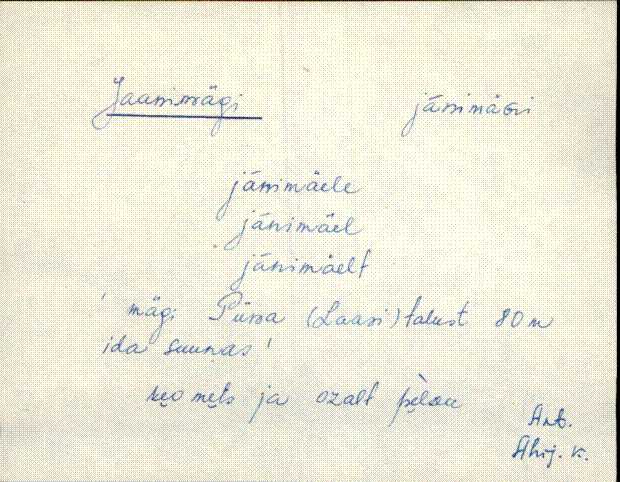 Jaanimägi jānimäGi
jānimäele
jānimäel
jānimäelt
' mägi Pürsa (Laasi) talust 80 m
ida suunas '
mets ja ozalt
Ant.
Ahij. k.